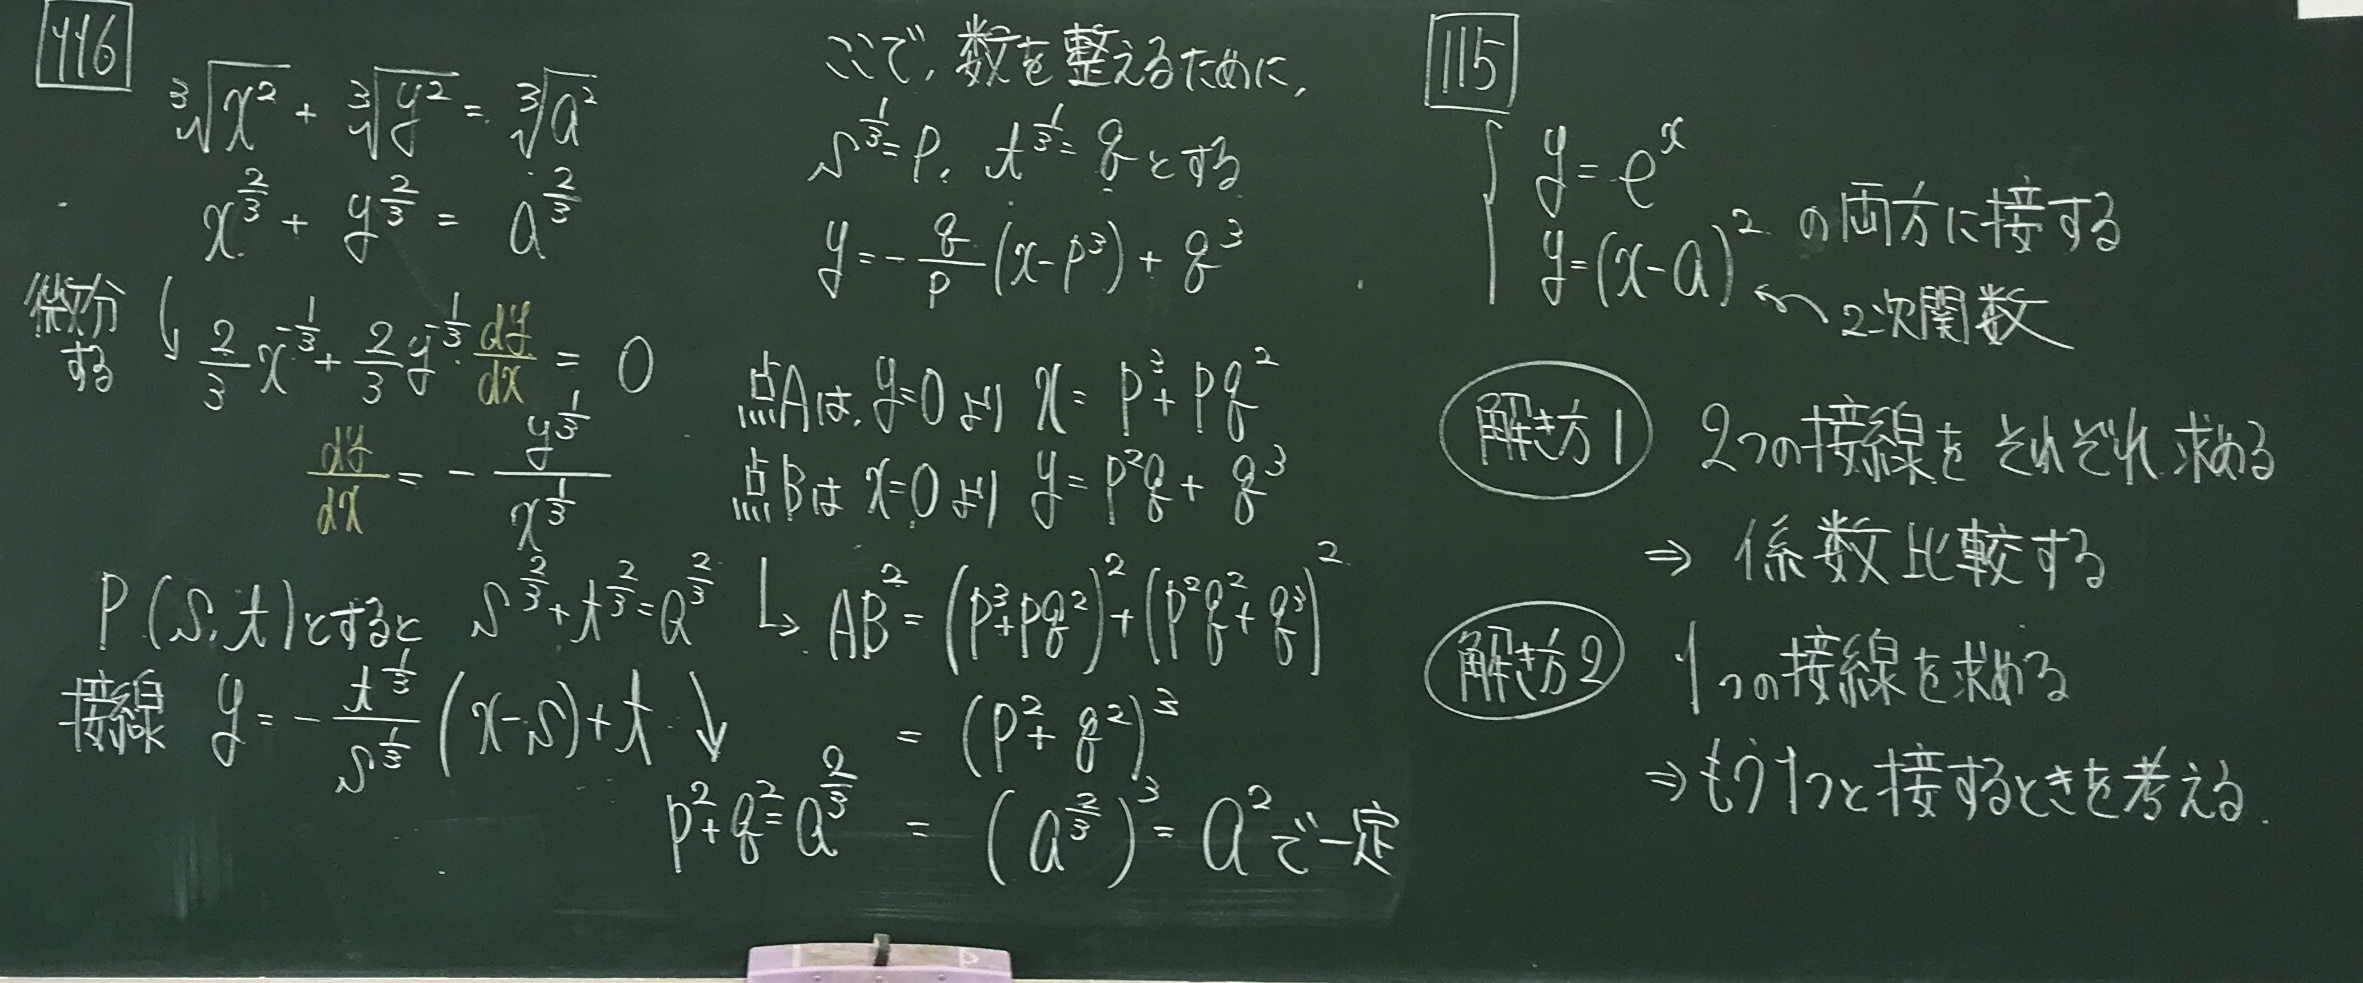 116
∛x² + ∛y² = ∛a²
x^{2/3} + y^{2/3} = a^{2/3}
微分する
2/3 x^{-1/3} + 2/3 y^{-1/3} · dy/dx = 0
dy/dx = - y^{1/3} / x^{1/3}
P(s, t)とすると s^{2/3} + t^{2/3} = a^{2/3}
接線 y = - t^{1/3} / s^{1/3} (x-s) + t
p² + q² = a^{2/3}
ここで, 数を整えるために,
s^{1/3} = p, t^{1/3} = q とする
y = - q/p (x-p³) + q³
点Aは, y=0より x = p³ + pq²
点Bは x=0より y = p²q + q³
↳ AB² = (p³+pq²)² + (p²q²+q³)²
= (p² + q²)³
= (a^{2/3})³ = a² で一定
115
y = e^x
y = (x-a)² の両方に接する
2次関数
解き方1 2つの接線を それぞれ 求める
⇒ 係数比較する
解き方2 1つの接線を求める
⇒ もう1つと接するときを考える.